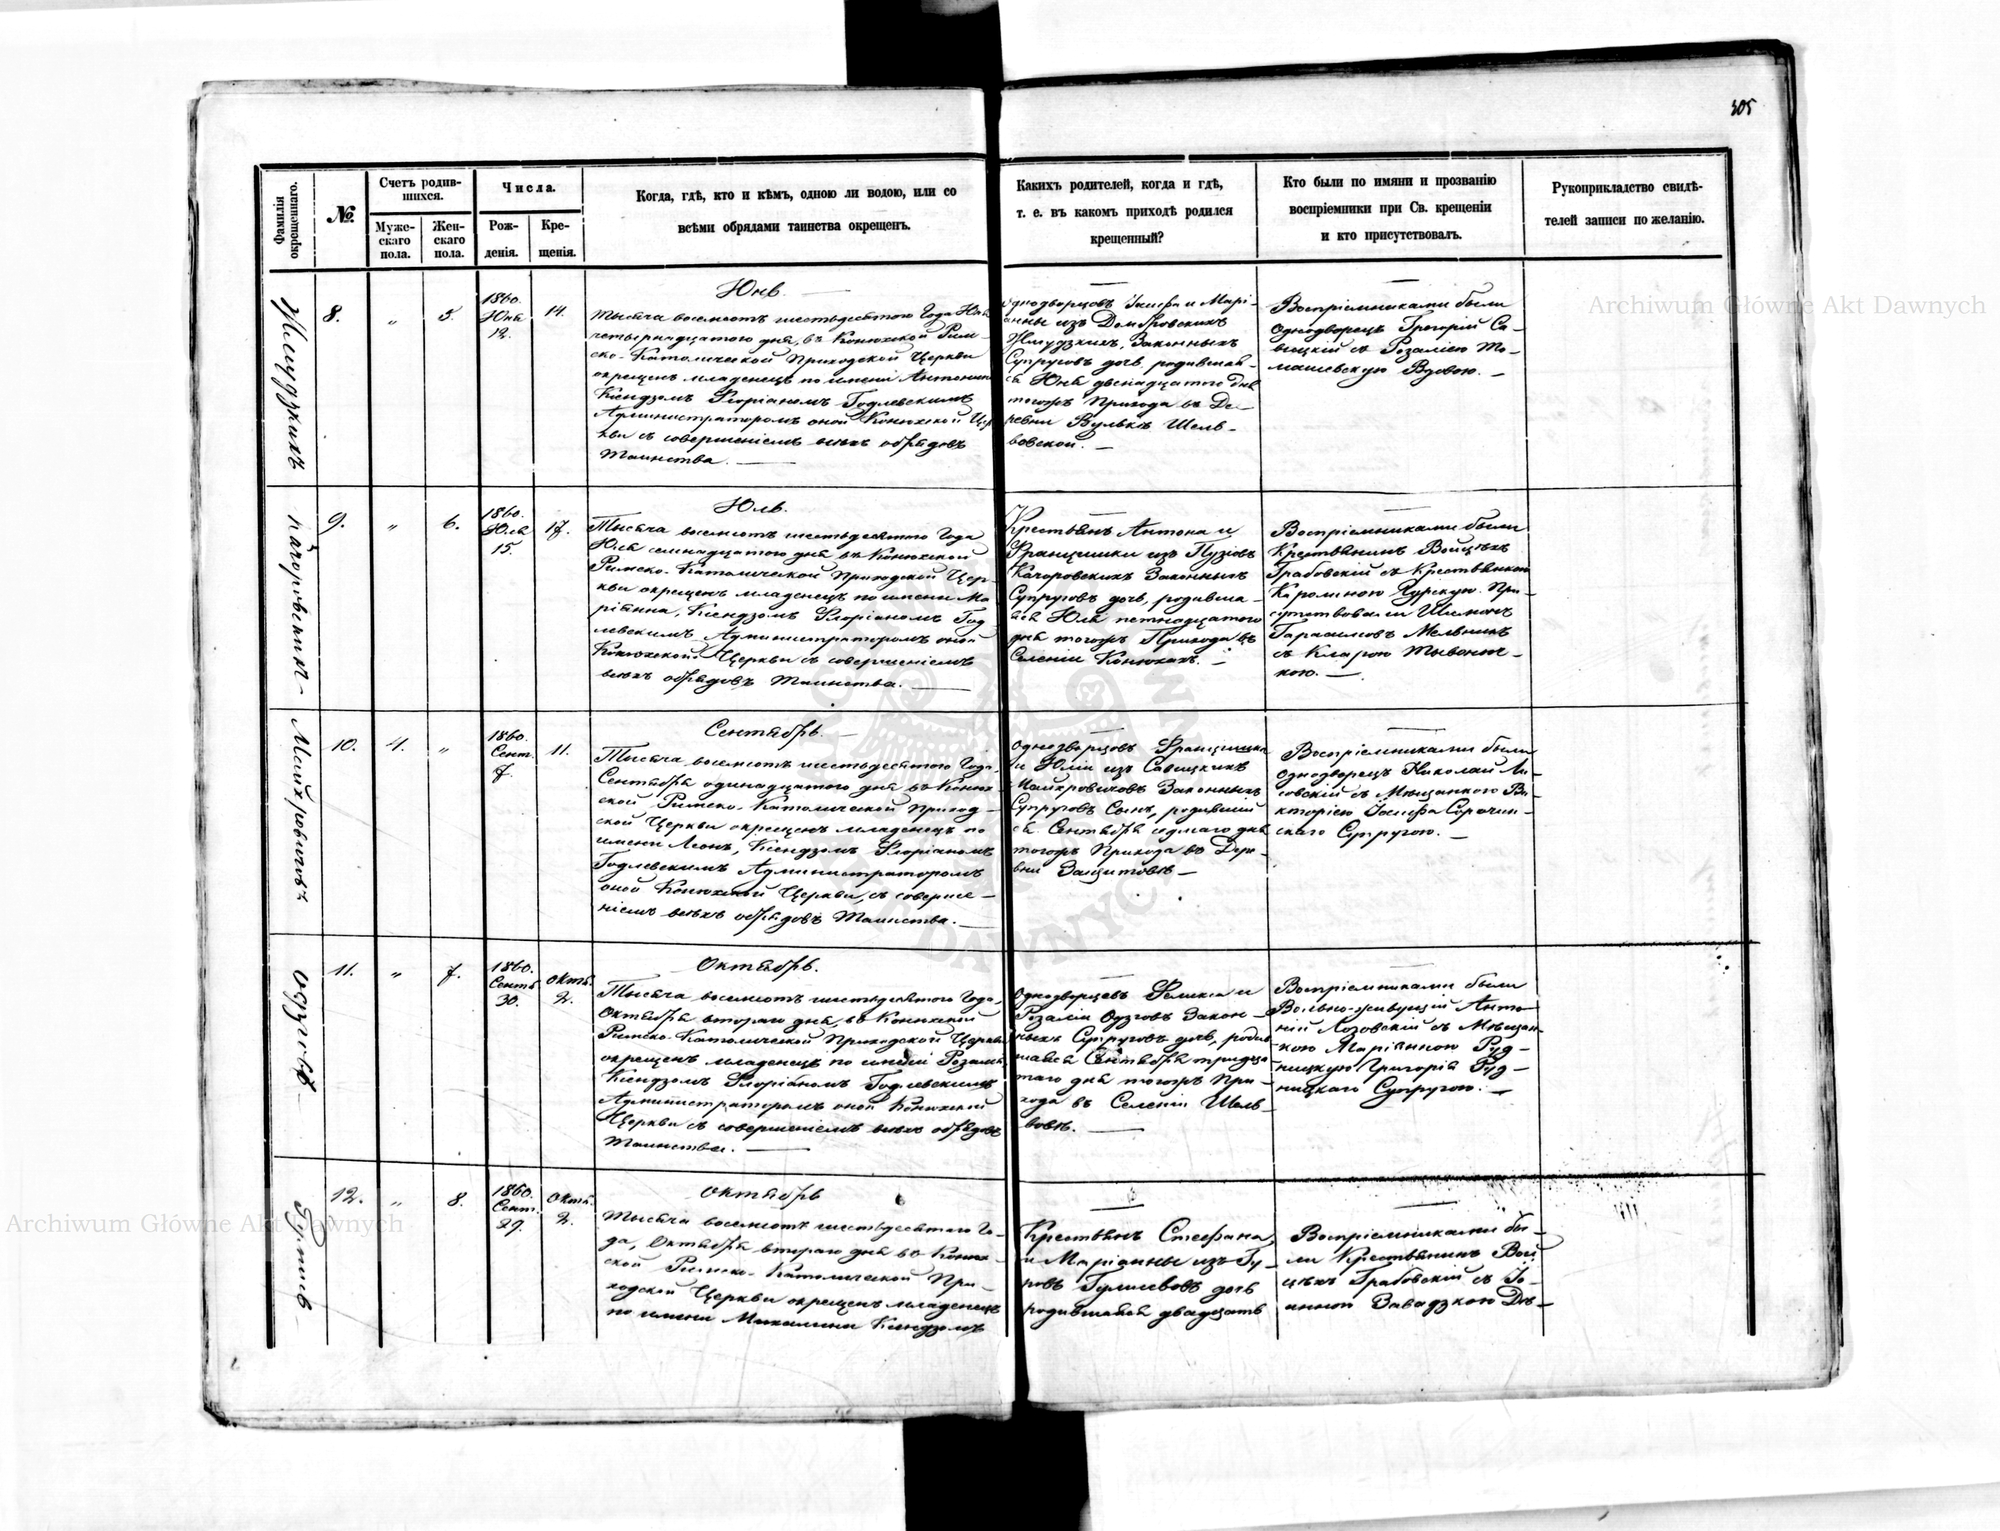 305
Фамилія окрещеннаго.
№
Счетъ родив-
шихся.
Муже-
скаго
пола.
Жен-
скаго
пола.
Числа.
Рож-
денія.
Кре-
щенія.
Когда, гдѣ, кто и кѣмъ, одною ли водою, или со
всѣми обрядами таинства окрещенъ.
Какихъ родителей, когда и гдѣ,
т. е. въ какомъ приходѣ родился
крещенный?
Кто были по имяни и прозванію
воспріемники при Св. крещеніи
и кто присутствовалъ.
Рукоприкладство свидѣ-
телей записи по желанію.
Жмудзкихъ
8.
„
5.
1860.
Юня
12.
14.
Юнь.
Тысяча восемсотъ шестьдесятого Года Юня
четырнадцатого дня, въ Конюхской Рим-
ско-Католической Приходской Церкви
окрещенъ младенецъ по имени Антонина
Ксендзомъ Флоріаномъ Годлевскимъ
Администраторомъ оной Конюхской Цер
кви съ совершеніемъ всѣхъ обрядовъ
Таинства. —
Однодворцовъ и Марі-
анны изъ Домбровскихъ
Жмудзкихъ, Законныхъ
Супруговъ дочь, родившая-
ся Юня двенадцатого дня
тогожъ Прихода въ Де-
ревни Вулькѣ Шель-
вовской. —
Воспріемниками были
Однодворецъ Грегорій Са-
вицкій съ Розаліею То-
машевскую Вдовою. —
Качоровскихъ
9.
„
6.
1860.
Юля
15.
17.
Юль.
Тысяча восемсотъ шестьдесятого Года
Юля семнадцатого дня въ Конюхской
Римско-Католической Приходской Цер-
кви окрещенъ младенецъ по имени Ма-
ріянна, Ксендзомъ Флоріаномъ Год
левскимъ Администраторомъ оной
Конюхской Церкви съ совершеніемъ
всѣхъ обрядовъ Таинства. —
Крестьянъ Антона и
Францишки изъ Пузіовъ
Качоровскихъ Законныхъ
Супруговъ дочь, родивша-
яся Юля петнадцатого
дня тогожъ Прихода въ
Селеніи Конюхахъ. —
Воспріемниками были
Крестьянинъ Войцѣхъ
Грабовскій съ Крестьянкою
Каролиною Явурскую. При-
сутствовали
Гарасимовъ Мельникъ
съ Кларою
кою. —
Майхровичовъ
10.
4.
„
1860.
Сент.
7.
11.
Сентябрь. —
Тысяча восемсотъ шестьдесятого Года,
Сентября одинадцатого дня въ Конюх-
ской Римско-Католической Приход-
ской Церкви окрещенъ младенецъ по
имени Леонъ, Ксендзомъ Флоріаномъ
Годлевскимъ Администраторомъ
оной Конюхской Церкви, съ соверше-
ніемъ всѣхъ обрядовъ Таинства. —
Однодворцовъ Францишка
и Юліи изъ Савицкихъ
Майхровичовъ Законныхъ
Супруговъ Сынъ, родивший
ся Сентября седмаго дня
тогожъ Прихода въ Дере-
вни Защитовѣ —
Воспріемниками были
Однодворецъ Николай Ли-
совскій съ Мѣщанкою Ви-
кторіею Іосифа Сорочин-
скаго Супругою. —
Одуговъ
11.
„
7.
1860.
Сентя
30.
Октя.
2.
Октябрь.
Тысяча восемсотъ шестьдесятого Года,
Октября второго дня, въ Конюхской
Римско-Католической Приходской Церкви
окрещенъ младенецъ по имени Розалія
Ксендзомъ Флоріаномъ Годлевскимъ
Администраторомъ оной Конюхской
Церкви съ совершеніемъ всѣхъ обрядовъ
Таинства. —
Однодворцевъ Феликса и
Розаліи Закон-
ныхъ Супруговъ дочь, родив
шаяся Сентября тридца-
таго дня тогожъ При-
хода въ Селеніи Шель-
вовѣ. —
Воспріемниками были
Вольно-живущій Анто-
ній Лозовскій съ Мѣщан-
кою Маріанною Руд-
ницкую Григорія Руд-
ницкаго Супругою. —
12.
„
8.
1860.
Сент.
29.
Октя.
2.
Октябрь
Тысяча восемсотъ шестьдесятого Го-
да, Октября второго дня въ Конюх-
ской Римско-Католической При-
ходской Церкви окрещенъ младенецъ
по имени Михалина Ксендзомъ
Крестьянъ Стефана,
и Маріанны изъ Гу-
ровъ дочь
родившаяся двадцать
Воспріемниками бы-
ли Крестьянинъ Вой
цѣхъ Грабовскій съ Іо-
анною Завадзкою Дѣ-
Archiwum Główne Akt Dawnych
Archiwum Główne Akt Dawnych